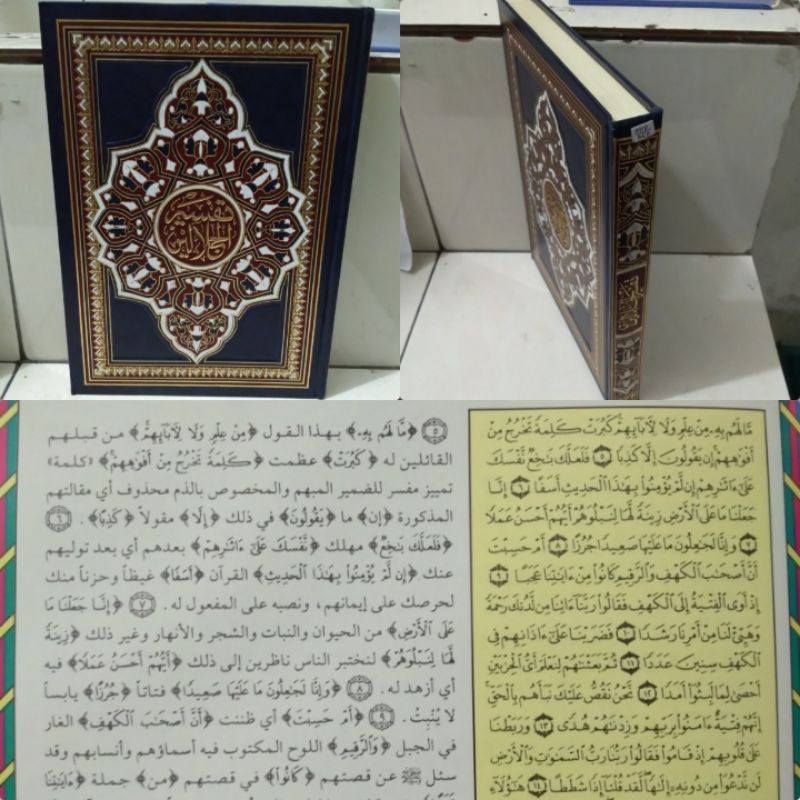 تفسير
الجلالين
تفسير الجلالين
مَّا لَهُم بِهِۦ مِنْ عِلْمٍ وَلَا لِآبَآئِهِمْ كَبُرَتْ كَلِمَةً تَخْرُجُ مِنْ
أَفْوَٰهِهِمْ إِن يَقُولُونَ إِلَّا كَذِبًا ٥ فَلَعَلَّكَ بَٰخِعٌ نَّفْسَكَ
عَلَىٰٓ ءَاثَٰرِهِمْ إِن لَّمْ يُؤْمِنُوا۟ بِهَٰذَا ٱلْحَدِيثِ أَسَفًا ٦ إِنَّا
جَعَلْنَا مَا عَلَى ٱلْأَرْضِ زِينَةً لَّهَا لِنَبْلُوَهُمْ أَيُّهُمْ أَحْسَنُ عَمَلًا
٧ وَإِنَّا لَجَٰعِلُونَ مَا عَلَيْهَا صَعِيدًا جُرُزًا ٨ أَمْ حَسِبْتَ
أَنَّ أَصْحَٰبَ ٱلْكَهْفِ وَٱلرَّقِيمِ كَانُوا۟ مِنْ ءَايَٰتِنَا عَجَبًا ٩
إِذْ أَوَى ٱلْفِتْيَةُ إِلَى ٱلْكَهْفِ فَقَالُوا۟ رَبَّنَآ ءَاتِنَا مِن لَّدُنكَ رَحْمَةً
وَهَيِّئْ لَنَا مِنْ أَمْرِنَا رَشَدًا ١٠ فَضَرَبْنَا عَلَىٰٓ ءَاذَانِهِمْ فِى
ٱلْكَهْفِ سِنِينَ عَدَدًا ١١ ثُمَّ بَعَثْنَٰهُمْ لِنَعْلَمَ أَىُّ ٱلْحِزْبَيْنِ
أَحْصَىٰ لِمَا لَبِثُوٓا۟ أَمَدًا ١٢ نَّحْنُ نَقُصُّ عَلَيْكَ نَبَأَهُم بِٱلْحَقِّ
إِنَّهُمْ فِتْيَةٌ ءَامَنُوا۟ بِرَبِّهِمْ وَزِدْنَٰهُمْ هُدًى ١٣ وَرَبَطْنَا
عَلَىٰ قُلُوبِهِمْ إِذْ قَامُوا۟ فَقَالُوا۟ رَبُّنَا رَبُّ ٱلسَّمَٰوَٰتِ وَٱلْأَرْضِ
لَن نَّدْعُوَا۟ مِن دُونِهِۦٓ إِلَٰهًا لَّقَدْ قُلْنَآ إِذًا شَطَطًا ١٤ هَٰٓؤُلَآءِ
٥ ﴿مَّا لَهُم بِهِۦ﴾ بهذا القول ﴿مِنْ عِلْمٍ وَلَا لِآبَآئِهِمْ﴾ من قبلهم
القائلين له ﴿كَبُرَتْ﴾ عظمت ﴿كَلِمَةً تَخْرُجُ مِنْ أَفْوَٰهِهِمْ﴾ «كلمة»
تمييز مفسر للضمير المبهم والمخصوص بالذم محذوف أي مقالتهم
المذكورة ﴿إِن﴾ ما ﴿يَقُولُونَ﴾ في ذلك ﴿إِلَّا﴾ مقولاً ﴿كَذِبًا﴾. ٦
﴿فَلَعَلَّكَ بَٰخِعٌ﴾ مهلك ﴿نَّفْسَكَ عَلَىٰٓ ءَاثَٰرِهِمْ﴾ بعدهم أي بعد توليهم
عنك ﴿إِن لَّمْ يُؤْمِنُوا۟ بِهَٰذَا ٱلْحَدِيثِ﴾ القرآن ﴿أَسَفًا﴾ غيظاً وحزناً منك
لحرصك على إيمانهم، ونصبه على المفعول له. ٧ ﴿إِنَّا جَعَلْنَا مَا
عَلَى ٱلْأَرْضِ﴾ من الحيوان والنبات والشجر والأنهار وغير ذلك ﴿زِينَةً
لَّهَا لِنَبْلُوَهُمْ﴾ لنختبر الناس ناظرين إلى ذلك ﴿أَيُّهُمْ أَحْسَنُ عَمَلًا﴾ فيه
أي أزهد له. ٨ ﴿وَإِنَّا لَجَٰعِلُونَ مَا عَلَيْهَا صَعِيدًا﴾ فتاتاً ﴿جُرُزًا﴾ يابساً
لا يُنْبِتُ. ٩ ﴿أَمْ حَسِبْتَ﴾ أي ظننت ﴿أَنَّ أَصْحَٰبَ ٱلْكَهْفِ﴾ الغار
في الجبل ﴿وَٱلرَّقِيمِ﴾ اللوح المكتوب فيه أسماؤهم وأنسابهم وقد
سئل ﷺ عن قصتهم ﴿كَانُوا۟﴾ في قصتهم ﴿مِنْ﴾ جملة ﴿ءَايَٰتِنَا